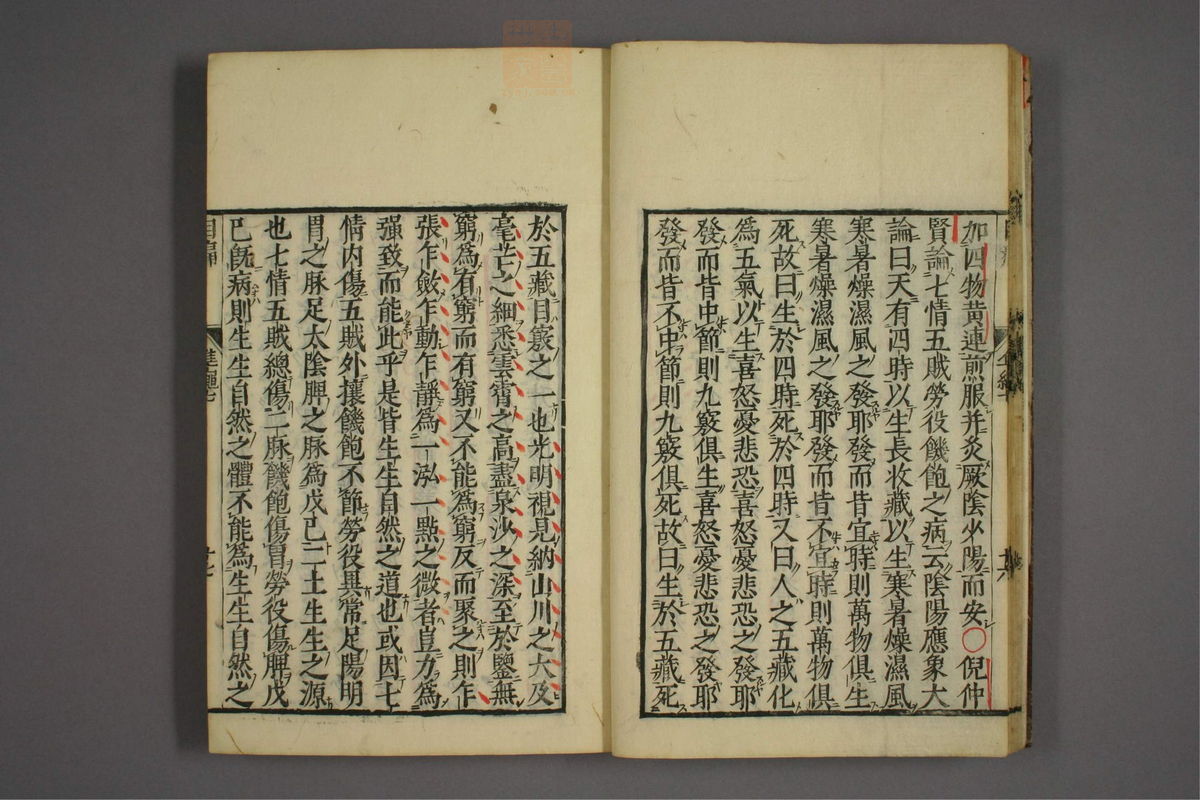 加四物黄連煎服并灸厥陰少陽而安○倪仲
賢論七情五賊勞役饑飽之病云陰陽應象大
論曰天有四時以生長收藏以生寒暑燥濕風
寒暑燥濕風之發耶發而皆宜時則萬物俱生
寒暑燥濕風之發耶發而皆不宜時則萬物俱
死故曰生於四時死於四時又曰人之五藏化
為五氣以生喜怒憂悲恐喜怒憂悲恐之發耶
發而皆中節則九竅俱生喜怒憂悲恐之發耶
發而皆不中節則九竅俱死故曰生於五藏死
於五藏目竅之一也光明視見納山川之大及
毫芒之細悉雲霄之高盡泉沙之深至於鑒無
窮為有窮而有窮又不能為窮反而聚之則乍
張乍斂乍動乍靜為一泓一點之微者豈力為
强致而能此乎是皆生生自然之道也或因七
情内傷五賊外攘饑飽不節勞役異常足陽明
胃之脉足太陰脾之脉為戊己二土生生之源
也七情五賊總傷二脉饑飽傷胃勞役傷脾戊
己既病則生生自然之體不能為生生自然之